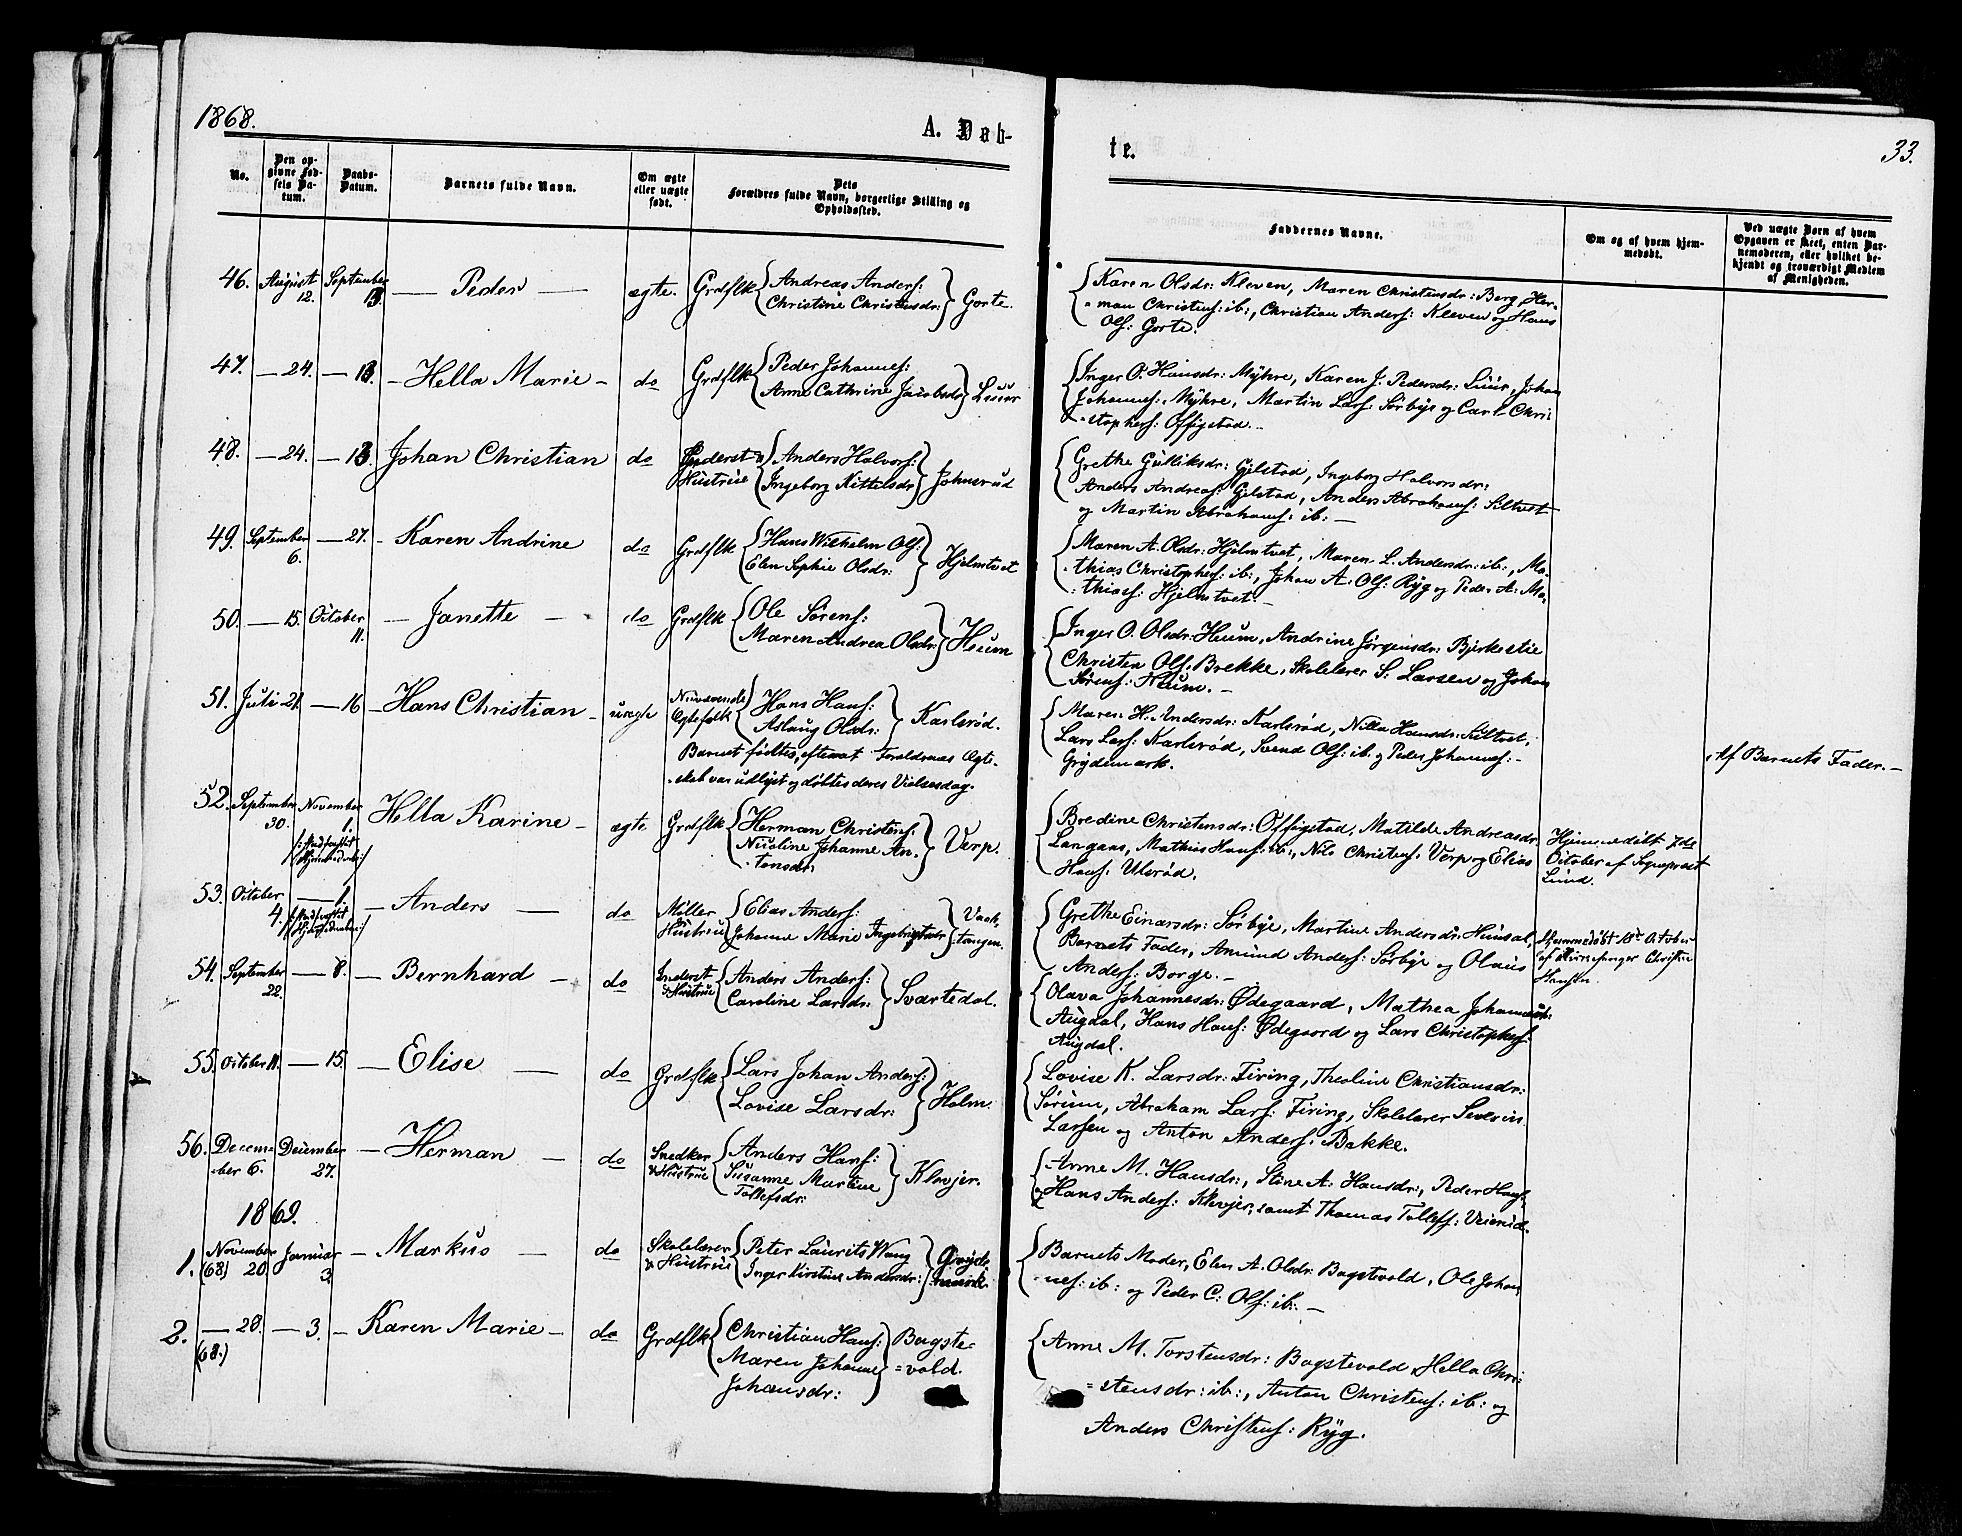 1868.
A. Døb-
te.
33.
No.
Den op-
givne Fød-
sels Da-
tum.
Daabs-
Datum.
Barnets fulde Navn.
Om ægte
eller uægte
født.
Dets
Forældres fulde Navn, borgerlige Stilling og
Opholdssted.
Faddernes Navne.
Om og af hvem hjem-
medøbt.
Ved uægte Børn af hvem
Opgaven er skeet, enten Bar-
nemoderen, eller hvilket be-
kjendt og troværdigt Medlem
af Menigheden.
46. August 12. September 13. — Peder — ægte. Grdflk Andreas Anders: Christine Christensdr: Gorte.
Karen Olsdr: Kleven, Maren Christensdr: Berg, Her-
=man Christens: ib:, Christian Anders: Kleven og Hans
Ols: Gorte.
47. — 24. — 13. — Hella Marie — do Grdflk Peder Johannes: Anne Cathrine Jacobsdr Liuur
Inger O. Hansdr: Myhre, Karen J. Pedersdr: Liuur, Johan
Johannes: Myhre, Martin Lars: Sørbye og Carl Chri-
=stophers: Offigstad.
48. — 24. — 13. Johan Christian do Inderst & Hustrue Anders Halvors: Ingeborg Kittelsdr Johnsrud
Grethe Gulliksdr: Gjelstad, Ingeborg Halvorsdr:
Anders Andreas: Gjelstad, Anders Abrahams: Siltvet
og Martin Abrahams: ib: —
49. September 6. — 27. — Karen Andrine do Grdflk Hans Wilhelm Ols: Elen Sophie Olsdr: Hjelmtvet
Maren A. Olsdr: Hjelmtvet, Maren L. Andersdr: ib:, Ma-
thias Christophers: ib:, Johan A. Ols: Ryg og Peder A: Ma-
thias: Hjelmtvet. —
50. — 15. October 11. — Janette — do Grdflk Ole Sørens: Maren Andrea Olsdr: Heum
Inger O. Olsdr: Heum, Andrine Jørgensdr: Bjerkestie
Christen Ols: Brekke, Skolelærer S. Larsen og Johan
Sørens: Heum. —
51. Juli 21. — 16 — Hans Christian — uægte Nuværende Egtefolk Hans Hans: Aslaug Olsdr: Karlsrød.
Barnet fødtes, efterat Forældrenes Ægte-
-skab var udlyst og døbtes deres Vielsesdag.
Maren H. Andersdr: Karlsrød, Nilla Hansdr: Siltvet,
Lars Lars: Karlsrød, Svend Ols: ib. og Peder Johannes: -
Grydemark.
Af Barnets Fader. —
52. September 30. November 1. (: Stadfæstet Hjemmedaab :) Hella Karine — ægte Grdflk Herman Christens: Nicoline Johanne An- tonsdr: Verp.
Bredine Christensdr: Offigstad, Matilde Andreasdr
Langaas, Mathias Hans: ib:, Nils Christens: Verp og Elias
Hans: Ulsrød.
Hjemmedøbt 7de
October af Sognepræst
Lund.
53. October 4. — 1. (: Stadfæstet Hjemmedaab :) — Anders — do Møller & Hustrue Elias Anders: Johanne Marie Ingebrigtsdr Vaak- tangen.
Grethe Einarsdr: Sørbye, Martine Andersdr: Hunsal,
Barnets Fader, Amund Anders: Sørbye og Olaus
Anders: Borge. —
Hjemmedøbt 18de October
af Kirkesanger Christen
Hansen.
54. September 22. — 8. — Bernhard — do Inderst & Hustrue Anders Anders: Caroline Larsdr: Svartedal.
Olava Johannesdr: Ødegaard, Mathea Johannesdr:
Augdal, Hans Hans: Ødegaard og Lars Christophers:
Augdal.
55. October 11. — 15. — Elise — do Grdflk Lars Johan Anders: Lovise Larsdr: Holm.
Lovise K. Larsdr: Firing, Theoline Christiansdr:
Sørum, Abraham Lars: Firing, Skolelærer Severin
Larsen og Anton Anders: Bakke.
56. Decem- ber 6. December 27. — Herman — do Snedker & Hustrue Anders Hans: Susanne Martine Tollefsdr: Klevjer.
Anne M. Hansdr:, Stine A. Hansdr:, Peder Hans:
& Hans Anders: Klevjer, samt Thomas Tollefs: Veierud.
1869.
1. November (68) 20. Januar 3. — Markus — do Skolelærer & Hustrue Peter Laurits Wang Inger Kirstine Andersdr: Gryde- mark.
Barnets Moder, Elen A. Olsdr: Bagstevold, Ole Johan-
=nes: ib: og Peder C: Ols: ib: —
2. — 28. (68.) — 3. — Karen Marie — do Grdflk Christian Hans: Maren Johanne Johansdr: Bagste- =vold.
Anne M. Torstensdr: Bagstevold, Hella Chri-
=stensdr: ib:, Anton Christens: ib: og
Anders Christens: Ryg.